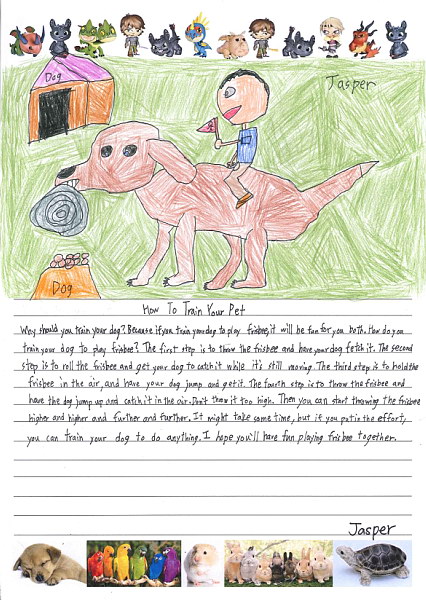 Dog
Jasper
Dog
How To Train Your Pet
Why should you train your dog? Because if you train your dog to play frisbee, it will be fun for you both. How do you
train your dog to play frisbee? The first step is to throw the frisbee and have your dog fetch it. The second
step is to roll the frisbee and get your dog to catch it while it's still moving. The third step is to hold the
frisbee in the air, and have your dog jump and get it. The fourth step is to throw the frisbee and
have the dog jump up and catch it in the air. Don't throw it too high. Then you can start throwing the frisbee
higher and higher and further and further. It might take some time, but if you put in the effort,
you can train your dog to do anything. I hope you'll have fun playing frisbee together.
Jasper